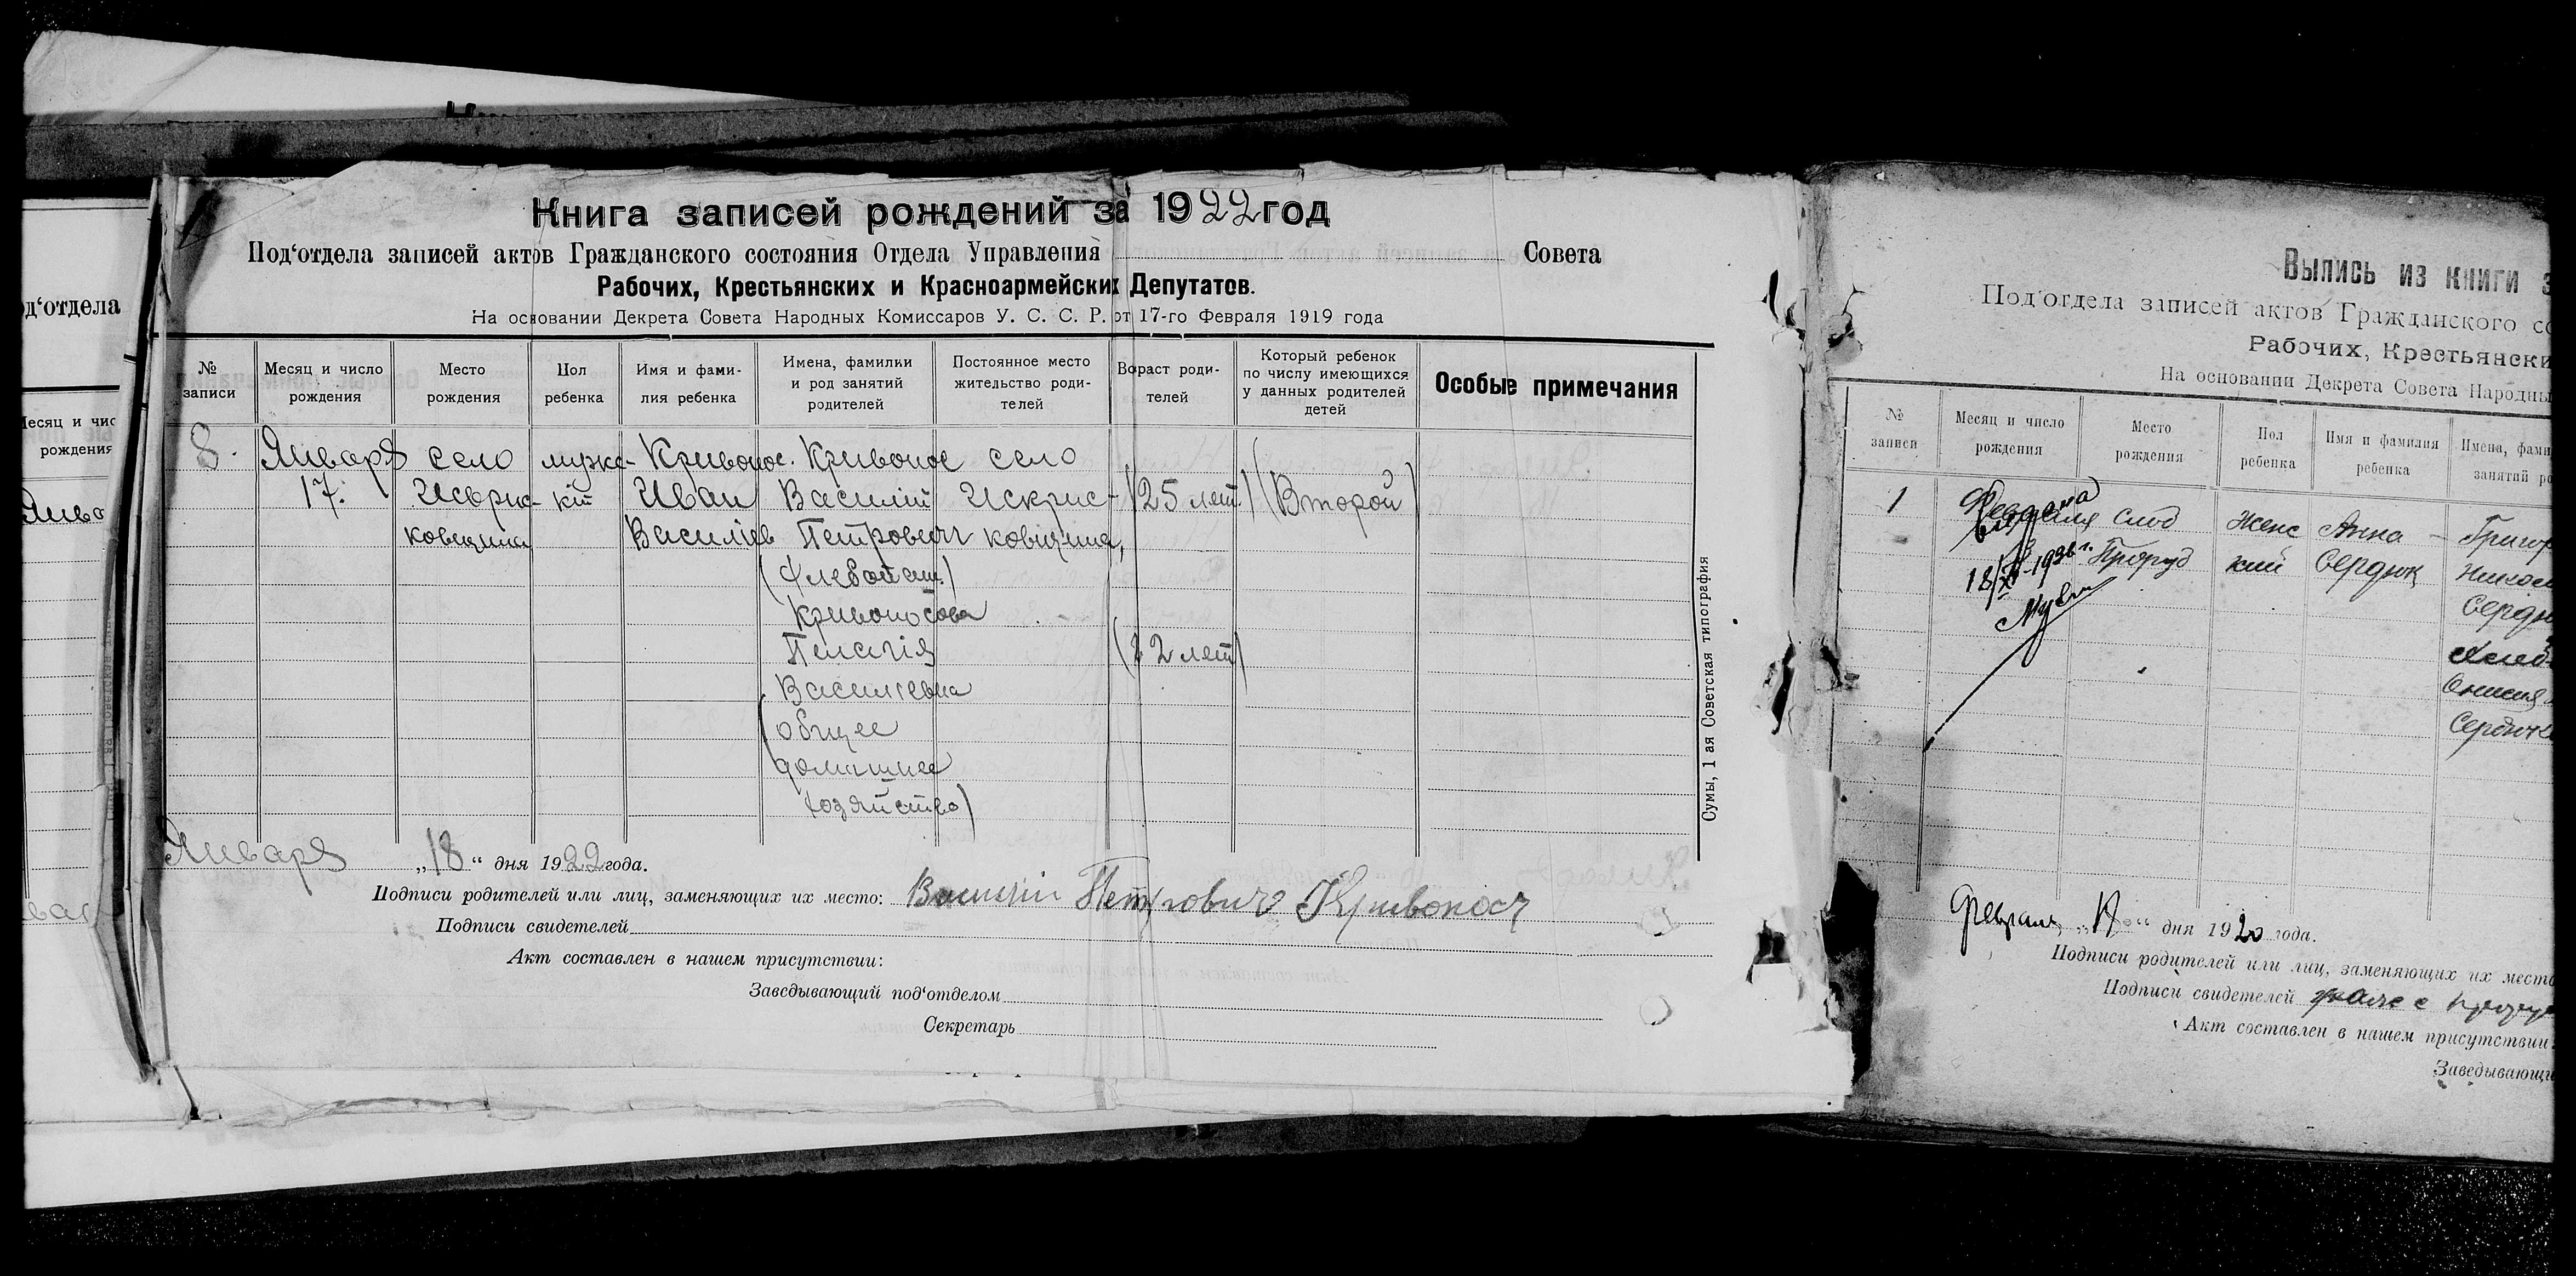 Книга записей рождений за 1922 год
Под‘отдела записей актов Гражданского состояния Отдела Управления Совета
Рабочих, Крестьянских и Красноармейских Депутатов.
На основании Декрета Совета Народных Комиссаров У. С. С. Р. от 17-го Февраля 1919 года
№ записи
Месяц и число рождения
Место рождения
Пол ребенка
Имя и фами-лия ребенка
Имена, фамилии и род занятий родителей
Постоянное место жительство роди-телей
Возраст роди-телей
Который ребенок по числу имеющихся у данных родителей детей
Особые примечания
8. Января село мужс- Кривонос. Кривонос село
17. Искрис- кій Иван Василій Искрис- (25 лет.) (Второй)
ковщина Василіев Петрович ковщина,
Кривоносова
Пелагія (22 лет)
Василіевна
(общее
домашнее
хозяйство)
Января „18“ дня 1922 года.
Подписи родителей или лиц, заменяющих их место: Василій Петрович Кривонос
Подписи свидетелей
Акт составлен в нашем присутствии:
Заведывающий под‘отделом
Секретарь
Сумы, 1 ая Советская типография
од‘отдела
Месяц и чис
рождения
Янва
Выпись из книги з
Под‘отдела записей актов Гражданского со
Рабочих, Крестьянски
На основании Декрета Совета Народны
№ записи
Месяц и число рождения
Место рождения
Пол ребенка
Имя и фамилия ребенка
Имена, фами
занятий ро
1 Февраля слоб Женс Анна Григор
18/XI-1936 г. Проруб кий Сердюк Никол
Сердю
Хлеб
Онисия
Сердюк
Февраля дня 1920 года.
Подписи родителей или лиц, заменяющих их место
Подписи свидетелей
Акт составлен в нашем присутствии:
Заведывающи